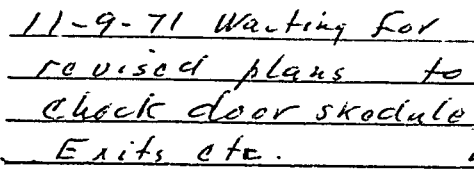 11-9-71 Waiting for
revised plans to
check door skedule
Exits etc.